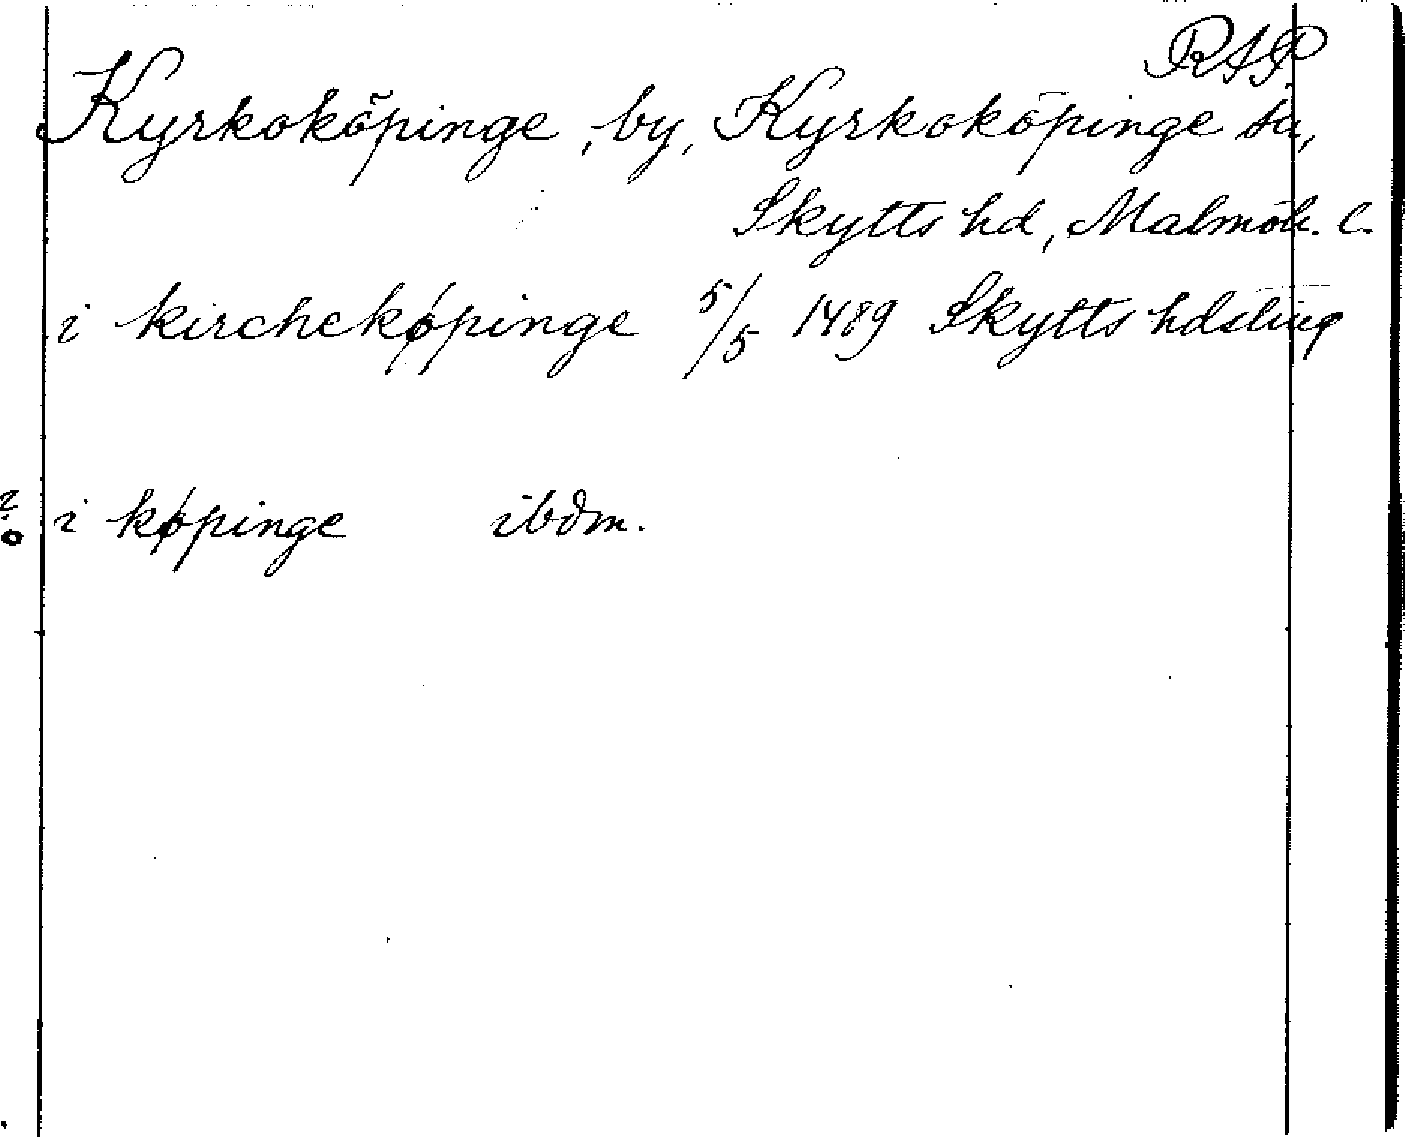 RAP
Kyrkoköpinge, by, Kyrkoköpinge sn,
Skytts hd, Malmöh. l.
i kircheköpinge 5/5 1489 Skytts hdsting
? i køpinge ibdm.